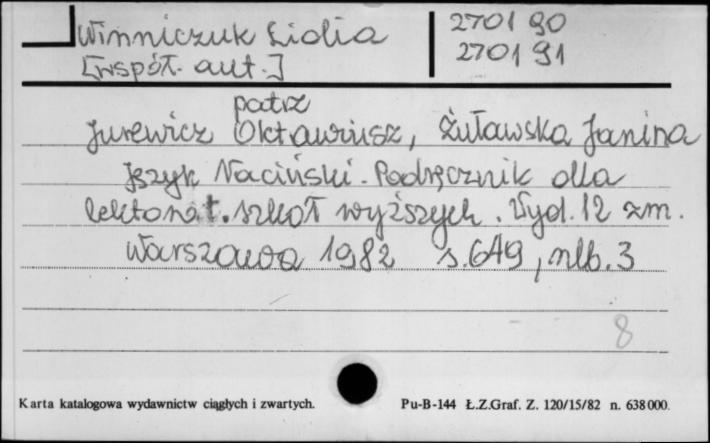 Winniczuk Lidia
[współ. aut.]
2701 90
2701 91
patrz
Jurewicz Oktawiusz, Żuławska Janina
Język łaciński - Podręcznik dla
lektorat. szkół wyższych. Wyd. 12 zm.
Warszawa 1982 s. 649, nlb. 3
8
Karta katalogowa wydawnictw ciągłych i zwartych.
Pu-B-144 Ł.Z.Graf. Z. 120/15/82 n. 638000.